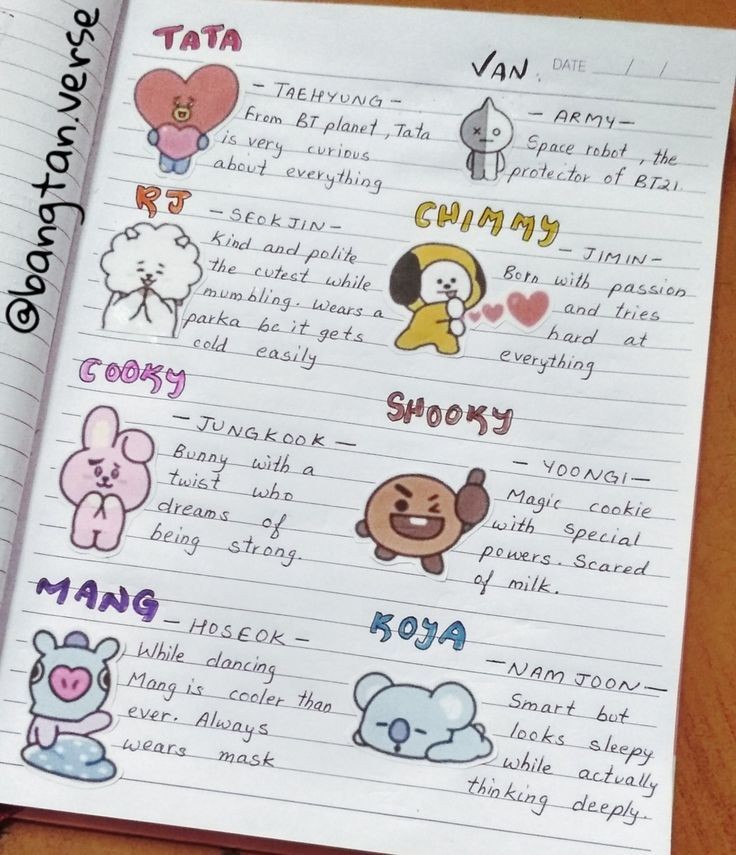 @bangtan.verse
TATA
- TAEHYUNG -
From BT planet, Tata
is very curious
about everything
VAN.
DATE / /
- ARMY -
Space robot, the
protector of BT21.
RJ
- SEOKJIN -
Kind and polite
the cutest while
mumbling. Wears a
parka bc it gets
cold easily
CHIMMY
- JIMIN -
Born with passion
and tries
hard at
everything
COOKY
- JUNGKOOK -
Bunny with a
twist who
dreams of
being strong.
SHOOKY
- YOONGI -
Magic cookie
with special
powers. Scared
of milk.
MANG
- HOSEOK -
While dancing
Mang is cooler than
ever. Always
wears mask
KOYA
- NAMJOON -
Smart but
looks sleepy
while actually
thinking deeply.